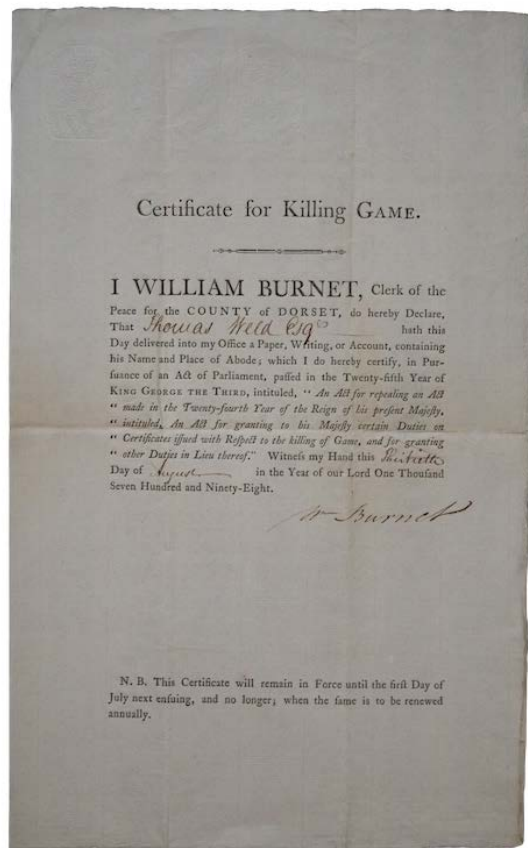 Certificate for Killing GAME.
I WILLIAM BURNET, Clerk of the
Peace for the COUNTY of DORSET, do hereby Declare,
That Thomas Weld Esqr hath this
Day delivered into my Office a Paper, Writing, or Account, containing
his Name and Place of Abode; which I do hereby certify, in Pur-
ſuance of an Act of Parliament, paſſed in the Twenty-fifth Year of
KING GEORGE THE THIRD, intituled, “ An Act for repealing an Act
“ made in the Twenty-fourth Year of the Reign of his preſent Majeſty,
“ intituled, An Act for granting to his Majeſty certain Duties on
“ Certificates iſſued with Reſpect to the killing of Game, and for granting
“ other Duties in Lieu thereof.” Witneſs my Hand this Thirtieth
Day of August in the Year of our Lord One Thouſand
Seven Hundred and Ninety-Eight.
Wm Burnet
N. B. This Certificate will remain in Force until the firſt Day of
July next enſuing, and no longer; when the ſame is to be renewed
annually.